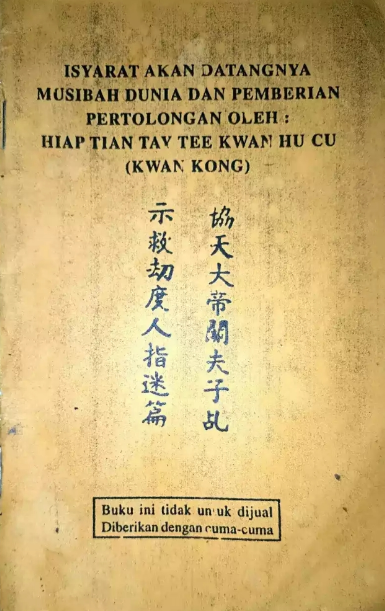 ISYARAT AKAN DATANGNYA
MUSIBAH DUNIA DAN PEMBERIAN
PERTOLONGAN OLEH :
HIAP TIAN TAY TEE KWAN HU CU
(KWAN KONG)
協天大帝關夫子乩
示救劫度人指迷篇
Buku ini tidak untuk dijual
Diberikan dengan cuma-cuma